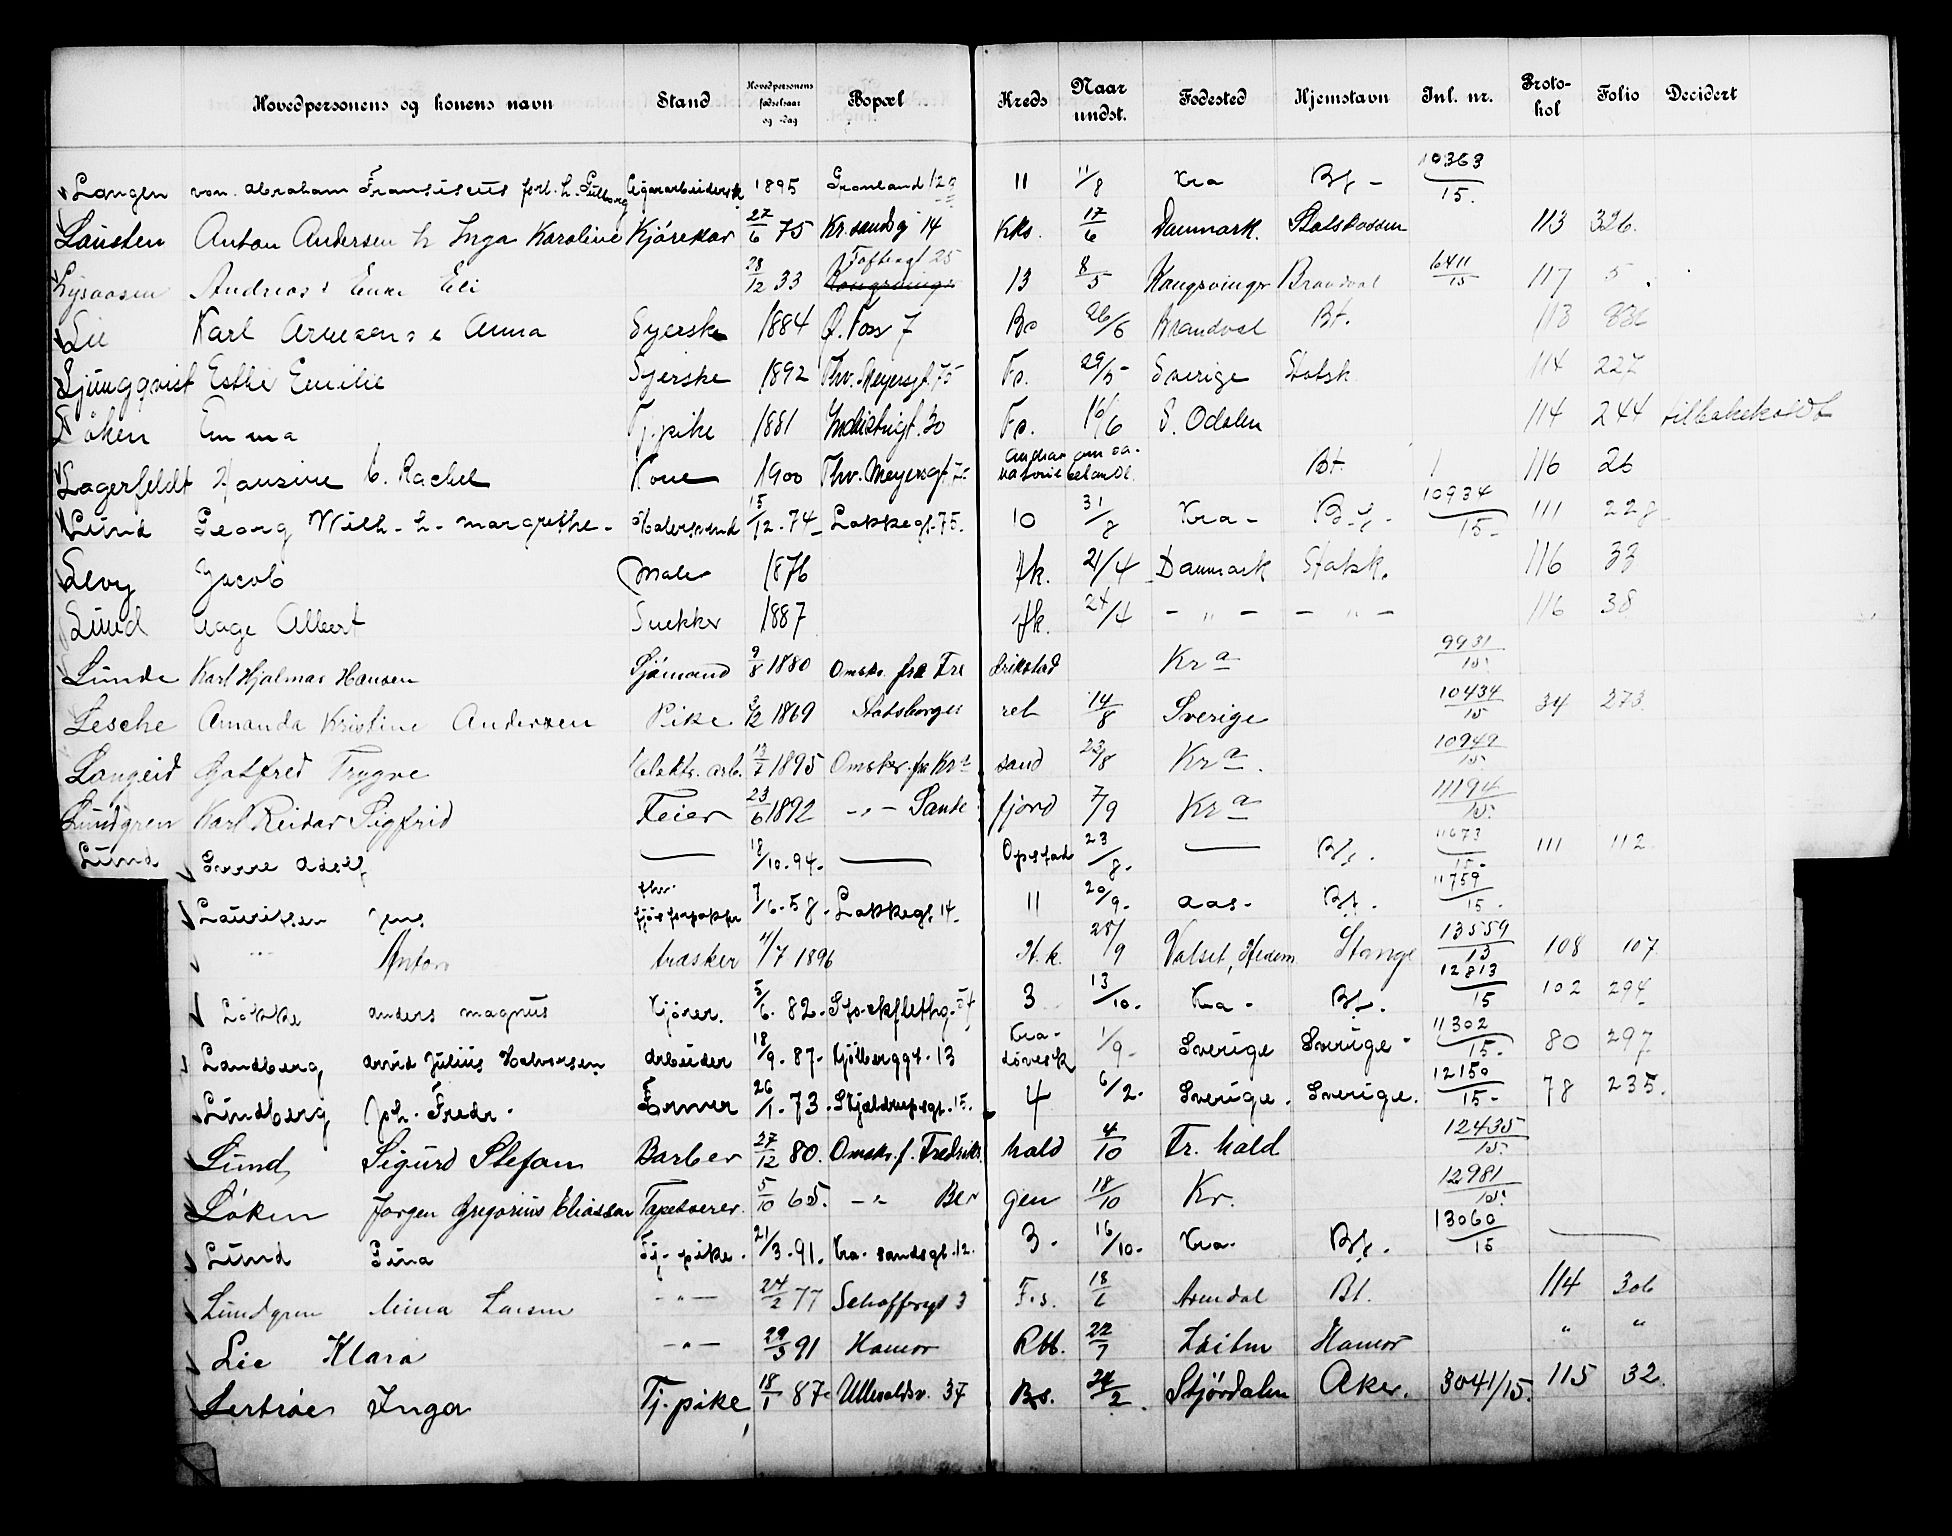 Hovedpersonens og konens navn Stand Hovedpersonens fødselsaar og -dag Bopæl Kreds Naar undst. Fødested Hjemstavn Inl. nr. Protokol Folio Decidert
Langen von. Abraham Fransiscus 1895 Grønland 12 11 11/8 Kra Bf - 10363/15.
Lausten Anton Andersen h Inga Karoline Kjørekar 27/6 75 Kr.sandsg 14 Kks. 17/6 Danmark. Statskassen 113 326.
Lysaasen Andreas : Enke Eli 28/12 33 Toftesgt 25 Kongsvinger 13 8/5 Kongsvinger Brandval 6411/15 117 5
Lie Karl Arnesen : e Anna Syerske 1884 Ø. Foss 7 Bo 26/6 Brandval Bt. 113
Ljungqvist Esthi Emilie Syerske 1892 Thv. Meyersgt. 75 Fs. 29/5 Sverige Statsk 114 227
Løken Emma Tj. pike 1881 Industrigt. 30 Fs. 16/6 S. Odalen 114 244 tilbakekaldt
Lagerfeldt Hansine b. Rachel Kone 1900 Thv. Meyersgt. Bt. 116 26
Lund Georg Wilh. h. Margrethe. Malersvend 15/12. 74 Lakkegt. 75. 10 31/8 Kra - Bf. 10934/15 111 228
Levy Jacob Maler 1876 Fk. 21/4 Danmark Statsk. 116 33
Lund Aage Albert Snekker 1887 Fk. 24/4 - " - - " - 116 38
Lunde Karl Hjalmar Hansen Sjømand 9/8 1880 Omskr. fra Fredrikstad Kra 9931/15.
Lesche Amanda Kristine Andersen Pike 3/12 1869 Statsborgerret 14/8 Sverige 10434/15 34 273.
Langeid Gotfred Trygve Elektr. arb. 13/7 1895 Omskr. fra Kr.sand 23/8 Kra. 10949/15.
Lundgren Karl Reidar Sigfrid Feier 23/6 1892 -"- Sandefjord 7/9 Kra 11194/15.
Lund Adolf 18/10. 94. Opstad 23/8. Bf. 11673/15. 111 112.
Lauritsen Jens 7/6. 58. Lakkegt. 14. 11 20/9. Aas. Bf. 11759/15.
" Anton træsker 11/7 1896 H.k. 25/9 Valset, Hedem Stange 13559/13 108 107
Løkke Anders Magnus Kjører. 5/6. 82. 3 13/10. Kra. Bf. 12813/15 102 294
Landberg Arvid Julius Halvorsen Arbeider 18/9. 87. Kjølberggt. 13 1/9. Sverige Sverige 11302/15. 80 297
Lundberg Joh. Fredr. Former 26/1. 73. Skjældrupsgt. 15. 4 6/2. Sverige. Sverige. 12150/15. 78 235.
Lund Sigurd Stefan Barber 27/12 80. Omskr. f. Fredrikshald 4/10 Fr. hald 12435/15.
Løken Jørgen Gregorius Eliassen Tapetserer. 5/10 65. -"- Bergen 18/10 Kr. 12981/15.
Lund Gina Tj. pike. 21/3. 91. Kra. sandsgt. 12. 3. 16/10. Kra. Bf. 13060/15
Lundgren Mina Larsen - " - 24/2 77 Schafftesgt 3 F.s. 18/6 Arendal Bt. 114 306
Lie Klara - " - 29/3 91 Hamar Rbb. 22/7 Løiten Hamar " "
Inga Tj. pike, 18/1 87. Ullevaldsv. 37 Bs. 24/2. Stjørdalen Aker. 3041/15. 115 32.